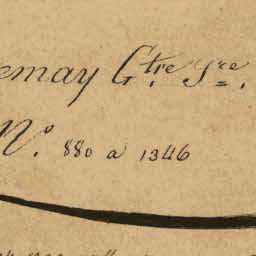 emay G.tre Sre.
No. 880 a 1346